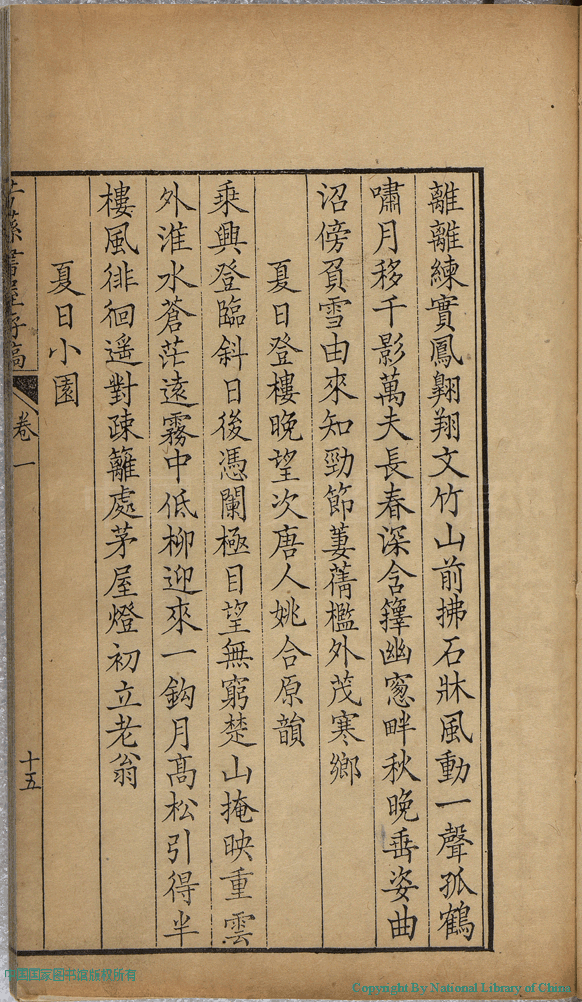 離離練實鳳翺翔文竹山前拂石牀風動一聲孤鶴
嘯月移千影萬夫長春深含籜幽窓畔秋晚垂姿曲
沼傍負雪由來知勁節萋蒨檻外茂寒鄉
夏日登樓晚望次唐人姚合原韻
乘興登臨斜日後憑闌極目望無窮楚山掩映重雲
外淮水蒼茫遠霧中低柳迎來一鈎月髙松引得半
樓風徘徊遥對疎籬處茅屋燈初立老翁
夏日小園
卷一
十五
中国国家图书馆版权所有
Copyright By National Library of China